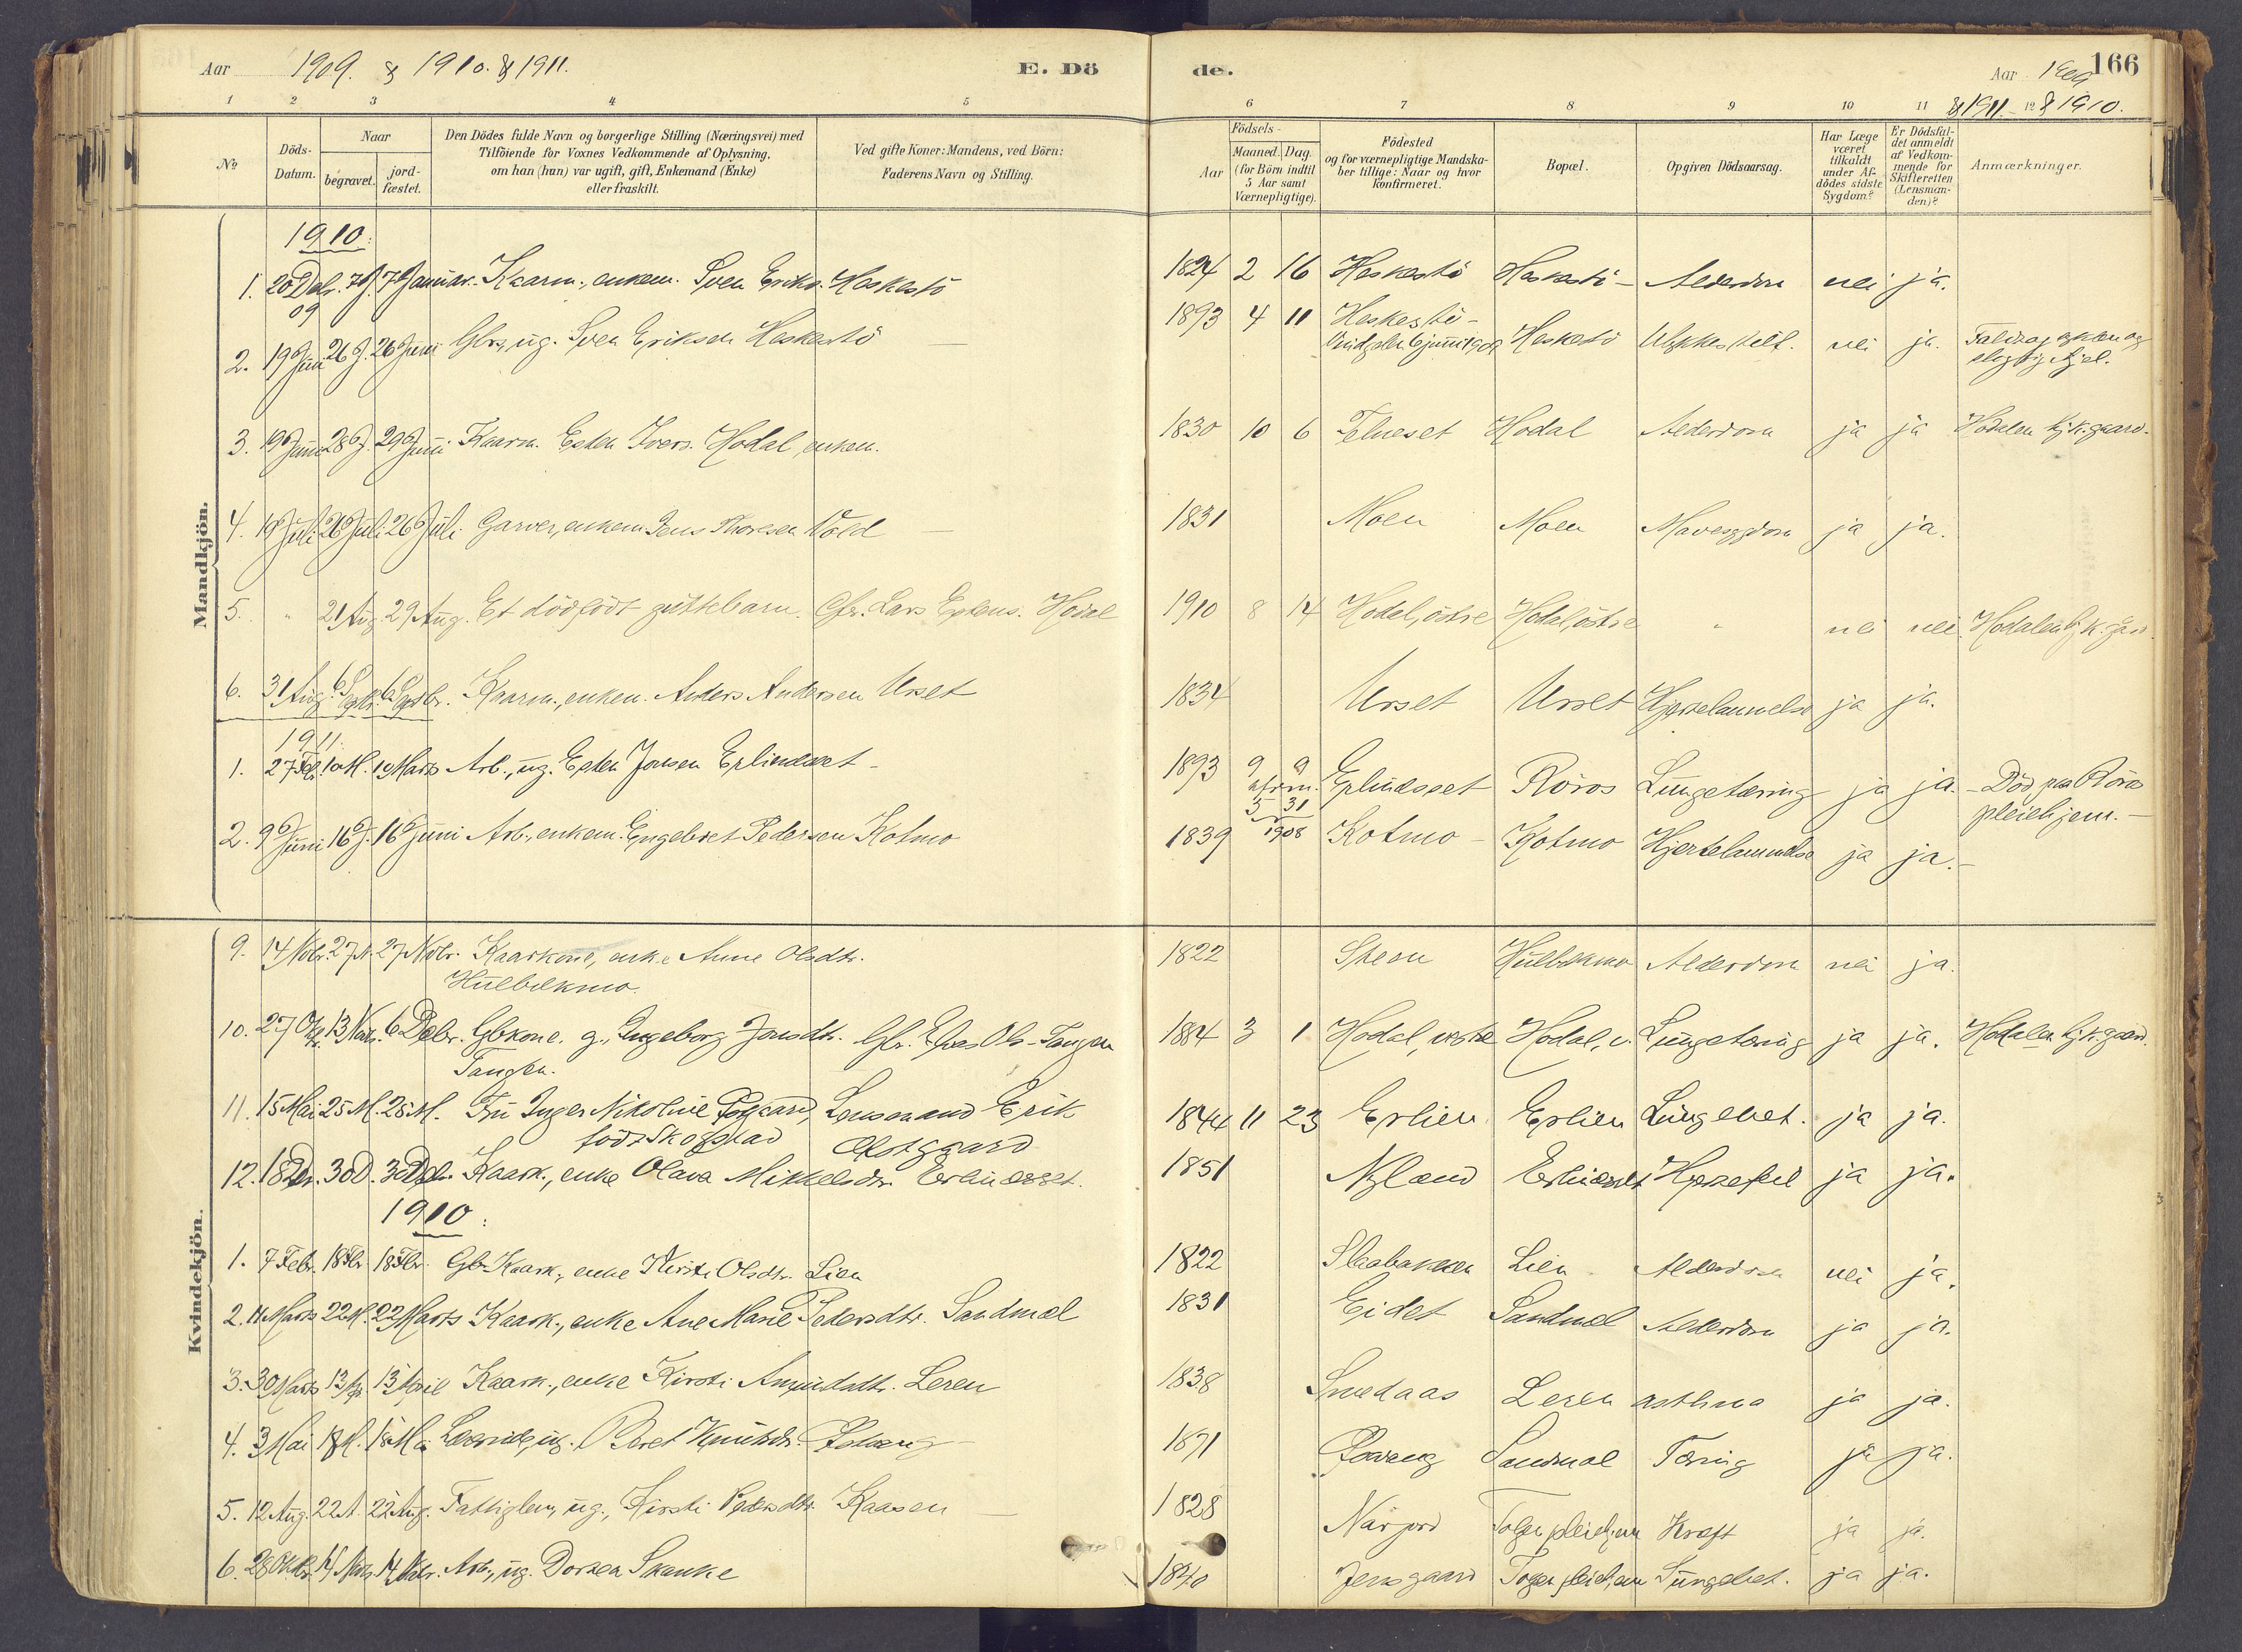 Aar 1909. & 1910. & 1911.
E. Dö
de.
Aar 1909 166
& 1911 & 1910.
1 2 3 4 5 6 7 8 9 10 11 12
No
Döds-Datum.
Naar
begravet.
jord-fæstet.
Den Dödes fulde Navn og borgerlige Stilling (Næringsvei) med
Tilföiende for Voxnes Vedkommende af Oplysning,
om han (hun) var ugift, gift, Enkemand (Enke)
eller fraskilt.
Ved gifte Koner: Mandens, ved Börn:
Faderens Navn og Stilling.
Födsels-
Aar
Maaned. Dag.
(for Börn indtil
5 Aar samt
Værnepligtige).
Födested
og for værnepligtige Mandska-
ber tillige: Naar og hvor
konfirmeret.
Bopæl.
Opgiven Dödsaarsag.
Har Læge
været
tilkaldt
under Af-
dödes sidste
Sygdom?
Er Dödsfal-
det anmeldt
af Vedkom-
mende for
Skifteretten
(Lensman-
den)?
Anmærkninger.
Mandkjön.
1910:
1. 20 Debr. 7 J. 7 Januar. Kaarm., enkem. Sven Eriks. Heskestö 1824 2 16 Heskestö Heskestö - Alderdom nei ja.
09
2. 19 Juni 26 J. 26 Juni Gbrs, ug. Sven Eriksen Heskestö 1893 4 11 Heskestö - Heskestö nei ja.
3. 19 Juni 28 J. 29 Juni Kaarm. Esten Ivers. Hodal, enkem. 1830 10 6 Telneset Hodal Alderdom ja ja Hodalen kj.k.gaard.
4. 19 Juli 26 Juli 26 Juli Garver, enkem. Jens Thoresen Vold 1831 Moen Moen Mavesygdom ja ja.
5. " 21 Aug. 29 Aug. Et dödfödt guttebarn. Gbr. Lars Estens. Hodal 1910 8 14 Hodal, östre Hodal, östre " nei nei Hodalen kj.k.gaard.
6. 31 Aug. 6 Septbr. 6 Septbr. Kaarm., enkem. Anders Andersen Urset 1834 Urset Urset Hjertelammelse ja ja.
1911:
1. 27 Feb. 10 M. 10 Marts Arb., ug. Esten Jonsen Erlindset - 1893 9 9 Erlindsset Röros Lungetæring ja ja. - Död paa Röros
5 31 1908
pleiehjem. -
2. 9 Juni 16 J. 16 Juni Arb., enkem. Engebret Pedersen Kotmo 1839 Kotmo - Kotmo Hjertelammelse ja ja. -
Kvindekjön.
9. 14 Novbr. 27 N. 27 Novbr. Kaarkone, enke Anne Olsdtr. 1822 Steen Hulbækmo Alderdom nei ja.
Hulbækmo.
10. 27 13 Nov. 6 Debr. Gbkone. g., Ingeborg Jonsdtr. Gbr. Ols. Tangen 1884 3 1 Hodal, vestre Hodal, v. Lungetæring ja ja. Hodalen kj.k.gaard.
Tangen.
11. 15 Mai 25 M. 25 M. Fru Inger Nikoline Lensmand Erik 1844 11 23 Erlien Erlien Lungebet. ja ja.
födt Skogstad
12. 18 Dr. 30 D. 30 Debr. Kaark., enke Olava Mikkelsdr. Erlindsset. 1851 Nyland Erlindset Hjertefeil ja ja.
1910:
1. 7 Febr. 18 Fbr. 18 Fbr. Gb. Kaark., enke Kirsti Olsdtr. Lien 1822 Slaabakken Lien Alderdom nei ja.
2. 11 Marts 22 M. 22 Marts Kaark., enke Ane Marie Pedersdtr. Sandmæl 1831 Eidet Sandmæl Alderdom ja ja.
3. 30 Marts 13 Ap. 13 April Kaark., enke Kirsti Amundsdtr. Leren 1838 Smedaas Leren asthma ja ja.
4. 3 Mai 18 M. 18 Mai ug. Beret Knutsdr. 1871 Sandmæl Tæring ja ja.
5. 12 Aug. 22 A. 22 Aug. Fattiglem, ug., Kirsti Pedersdtr. Kaasen 1828 Narjord Tolgen pleiehjem Kræft ja ja.
6. 28 Oktbr. 14 Nov. 14 Novbr. Arb., ug. Dortea Skanke 1840 Jensgaard Tolgen pleiehjem Lungebet. ja ja.